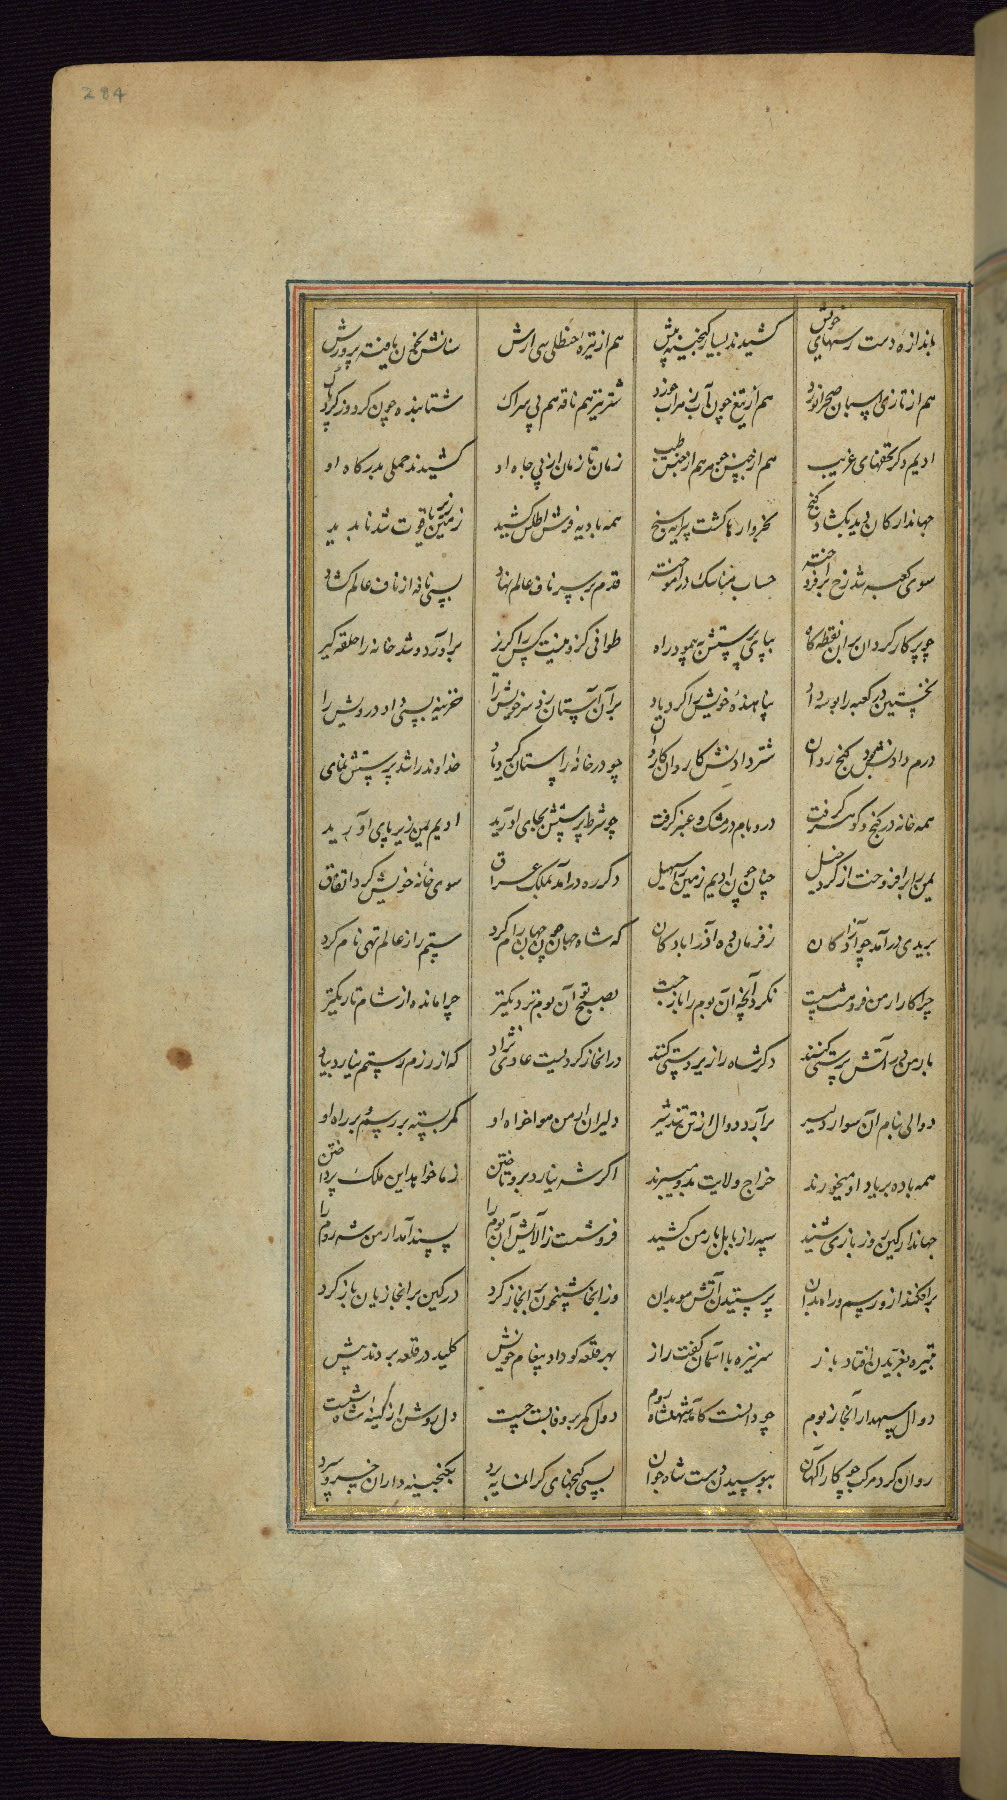 284
باندازهٔ دست رسهای خویش کشیدند بسیار گنجینه پیش هم از نیزهٔ خطی سی ارش سنانش بخون یافته پرورش
هم از تازی اسپان صحرانورد هم از تیغ چون آب زهراب خورد شتر نیز هم ناقه هم بی سراک شتابنده چون کرد روز
ادیم و دگر تحفهای غریب هم از جنس جوهر هم از جنس طیب زمان تا زمان از پی جاه او کشیدند حملی بدرگاه او
جهاندار کان دید بگشاد گنج بخروارها گشت پیرایه سنج همه بادیه فرش اطلس کشید زمین زیر یاقوت شد ناپدید
سوی کعبه شد رخ برافروخته حساب مناسک درآموخته قدم بر سر ناف عالم نهاد بسی نافه از ناف عالم گشاد
چو پرکار گردان بران نقطه گاه بپای پرستش بپیمود راه طوافی کزو نیست کس را گریز برآورد و شد خانه را حلقه گیر
نخستین در کعبه را بوسه داد پناهندهٔ خویش را کرد یاد بران آستان زد سر خویش را خزینه بسی داد درویش را
درم دادنش بود گنج روان شتر دادنش کاروان کاروان چو در خانهٔ راستان کرد جای خداوند را شد پرستش نمای
همه خانه در گنج و گوهر گرفت در و بام در مشک و عنبر گرفت چو شرط پرستش بجای آورید ادیم یمن زیر پای آورید
یمن را برافروخت از گرد خیل چنان چون ادیم زمین را سهیل دگر ره درآمد بملک عراق سوی خانهٔ خویش کرد اتفاق
بریدی درآمد چو آزادگان ز فرمان ده آذرابادگان که شاه جهان چون جهان رام کرد ستم را ز عالم تهی نام کرد
چرا کار ارمن فروهشت سست نکرد آنچه آن بوم را باز جست بصبح تو آن بوم نزدیکتر چرا مانده از شام تاریکتر
بارمن درآتش پرستی کنند دگر شاه را زیردستی کنند در ابخاز کردیست عادی نژاد که از رزم رستم نیارد بیاد
دوالی بنام آن سوار دلیر برآرد دوال از تن تند شیر دلیران ارمن هواخواه او کمر بسته بر رسم و بر راه او
همه باده بر یاد او میخورند خراج ولایت بدو میبرند اگر شه نیارد برو تاختن ز ما خواهد این ملک پرداختن
جهاندار کین روز بازی شنید سپه را ز بابل بارمن کشید فروشست ز آلایش آن بوم را پسند آمد ارمن شه روم را
برافکند ازو رسم و راه بدان پرستیدن آتش موبدان وز انجا شبیخون بابخاز کرد در کین بر ابخازیان باز کرد
تبیره بغریدن افتاد باز سر نیزه با آسمان گفت راز بهر قلعه کو داد پیغام خویش کلید در قلعه بردند پیش
دوال سپهدار ابخاز بوم چو دانست کامد شهنشاه روم دوال کمر بر وفا بست چست دل روشن از کینهٔ شاه شست
روان کرد مرکب چو کارآگهان ببوسیدن دست شاه جوان بسی گنجهای گرانمایه برد بگنجینه داران خسرو سپرد